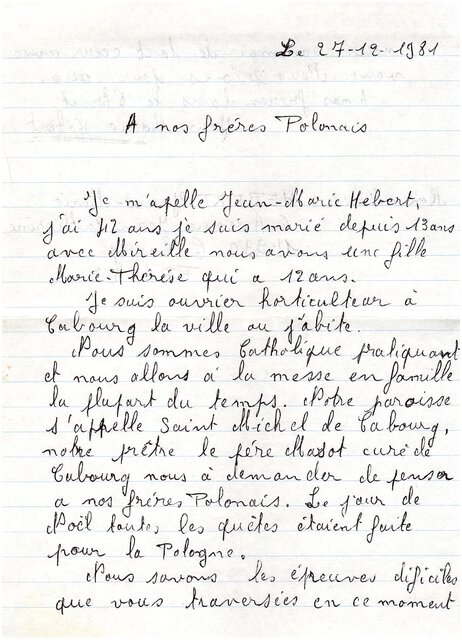 Le 27-12-1981
A nos fréres Polonais
Je m'apelle Jean-Marie Hébert,
j'ai 42 ans je suis marié depuis 13 ans
avec Mireille nous avons une fille
Marie-Thérèse qui a 12 ans.
Je suis ouvrier horticulteur à
Cabourg la ville ou j'abite.
Nous sommes Catholique pratiquant
et nous allons à la messe en famille
la plupart du temps. Notre paroisse
s'appelle Saint Michel de Cabourg,
notre prêtre le pére Masot curé de
Cabourg nous à demander de penser
a nos fréres Polonais. Le jour de
Noël toutes les quêtes étaient faite
pour la Pologne.
Nous savons les épreuves dificiles
que vous traversées en ce moment